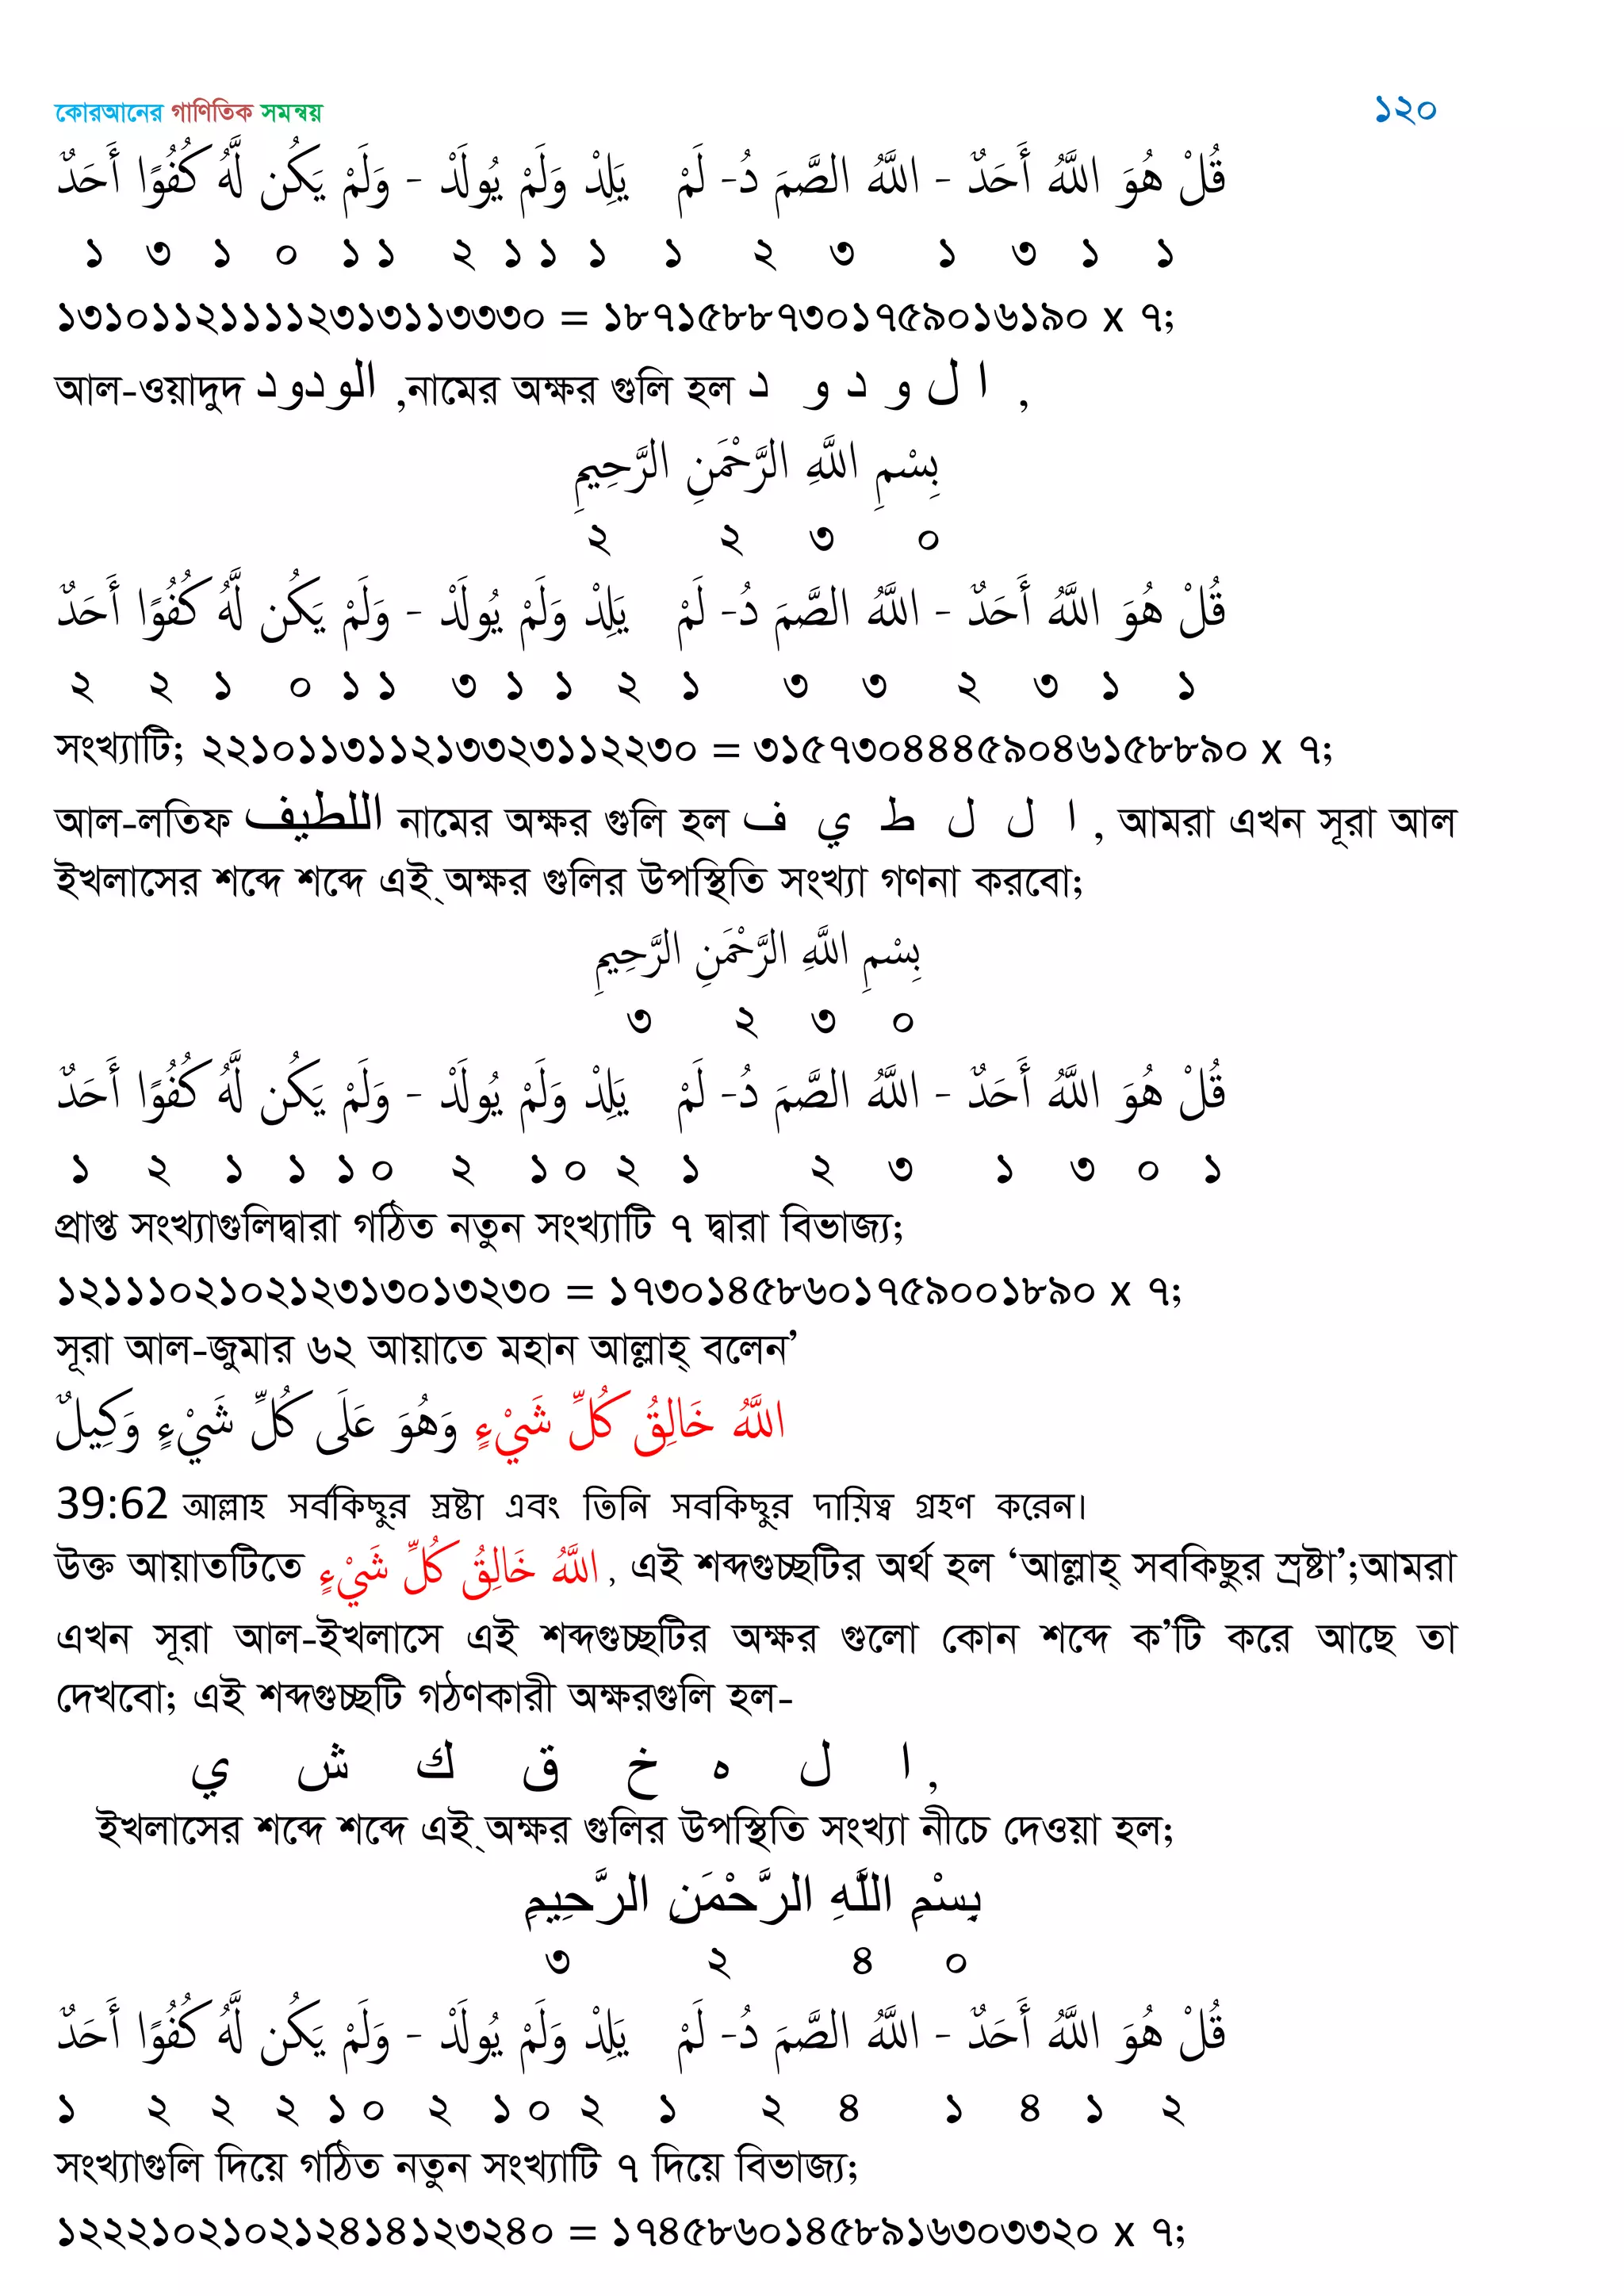 কোরআনের গাণিতিক সমন্বয় ১২০
قُلْ هُوَ اللَّهُ أَحَدٌ - اللَّهُ الصَّمَدُ - لَمْ يَلِدْ وَلَمْ يُولَدْ - وَلَمْ يَكُن لَّهُ كُفُوًا أَحَدٌ
১ ৩ ১ ০ ১ ১ ২ ১ ১ ১ ১ ২ ৩ ১ ৩ ১ ১
১৩১০১১২১১১১২৩১৩১১৩৩৩০ = ১৮৭১৫৮৮৭৩০১৭৫৯০১৬১৯০ x ৭;
আল-ওয়াদুদ الودود ,নামের অক্ষর গুলি হল ا ل و د و د ,
بِسْمِ اللَّهِ الرَّحْمَنِ الرَّحِيمِ
২ ২ ৩ ০
قُلْ هُوَ اللَّهُ أَحَدٌ - اللَّهُ الصَّمَدُ - لَمْ يَلِدْ وَلَمْ يُولَدْ - وَلَمْ يَكُن لَّهُ كُفُوًا أَحَدٌ
২ ২ ১ ০ ১ ১ ৩ ১ ১ ২ ১ ৩ ৩ ২ ৩ ১ ১
সংখ্যাটি; ২২১০১১৩১১২১৩৩২৩১১২২৩০ = ৩১৫৭৩০৪৪৪৫৯০৪৬১৫৮৮৯০ x ৭;
আল-লতিফ اللطيف নামের অক্ষর গুলি হল ا ل ل ط ي ف , আমরা এখন সূরা আল
ইখলাসের শব্দে শব্দে এই্ অক্ষর গুলির উপস্থিতি সংখ্যা গণনা করবো;
بِسْمِ اللَّهِ الرَّحْمَنِ الرَّحِيمِ
৩ ২ ৩ ০
قُلْ هُوَ اللَّهُ أَحَدٌ - اللَّهُ الصَّمَدُ - لَمْ يَلِدْ وَلَمْ يُولَدْ - وَلَمْ يَكُن لَّهُ كُفُوًا أَحَدٌ
১ ২ ১ ১ ১ ০ ২ ১ ০ ২ ১ ২ ৩ ১ ৩ ০ ১
প্রাপ্ত সংখ্যাগুলিদ্বারা গঠিত নতুন সংখ্যাটি ৭ দ্বারা বিভাজ্য;
১২১১১০২১০২১২৩১৩০১৩২৩০ = ১৭৩০১৪৫৮৬০১৭৫৯০০১৮৯০ x ৭;
সূরা আল-জুমার ৬২ আয়াতে মহান আল্লাহ্ বলেন’
اللَّهُ خَالِقُ كُلِّ شَيْءٍ وَهُوَ عَلَى كُلِّ شَيْءٍ وَكِيلٌ
39:62 আল্লাহ সর্বকিছুর স্রষ্টা এবং তিনি সবকিছুর দায়িত্ব গ্রহণ করেন।
উক্ত আয়াতটিতে اللَّهُ خَالِقُ كُلِّ شَيْءٍ , এই শব্দগুচ্ছটির অর্থ হল ‘আল্লাহ্ সবকিছুর স্রষ্টা’;আমরা
এখন সূরা আল-ইখলাসে এই শব্দগুচ্ছটির অক্ষর গুলো কোন শব্দে ক’টি করে আছে তা
দেখবো; এই শব্দগুচ্ছটি গঠণকারী অক্ষরগুলি হল-
ا ل ه خ ق ك ش ي ,
ইখলাসের শব্দে শব্দে এই্ অক্ষর গুলির উপস্থিতি সংখ্যা নীচে দেওয়া হল;
بِسْمِ اللَّهِ الرَّحْمَنِ الرَّحِيمِ
৩ ২ ৪ ০
قُلْ هُوَ اللَّهُ أَحَدٌ - اللَّهُ الصَّمَدُ - لَمْ يَلِدْ وَلَمْ يُولَدْ - وَلَمْ يَكُن لَّهُ كُفُوًا أَحَدٌ
১ ২ ২ ২ ১ ০ ২ ১ ০ ২ ১ ২ ৪ ১ ৪ ১ ২
সংখ্যাগুলি দিয়ে গঠিত নতুন সংখ্যাটি ৭ দিয়ে বিভাজ্য;
১২২২১০২১০২১২৪১৪১২৩২৪০ = ১৭৪৫৮৬০১৪৫৮৯১৬৩০৩৩২০ x ৭;